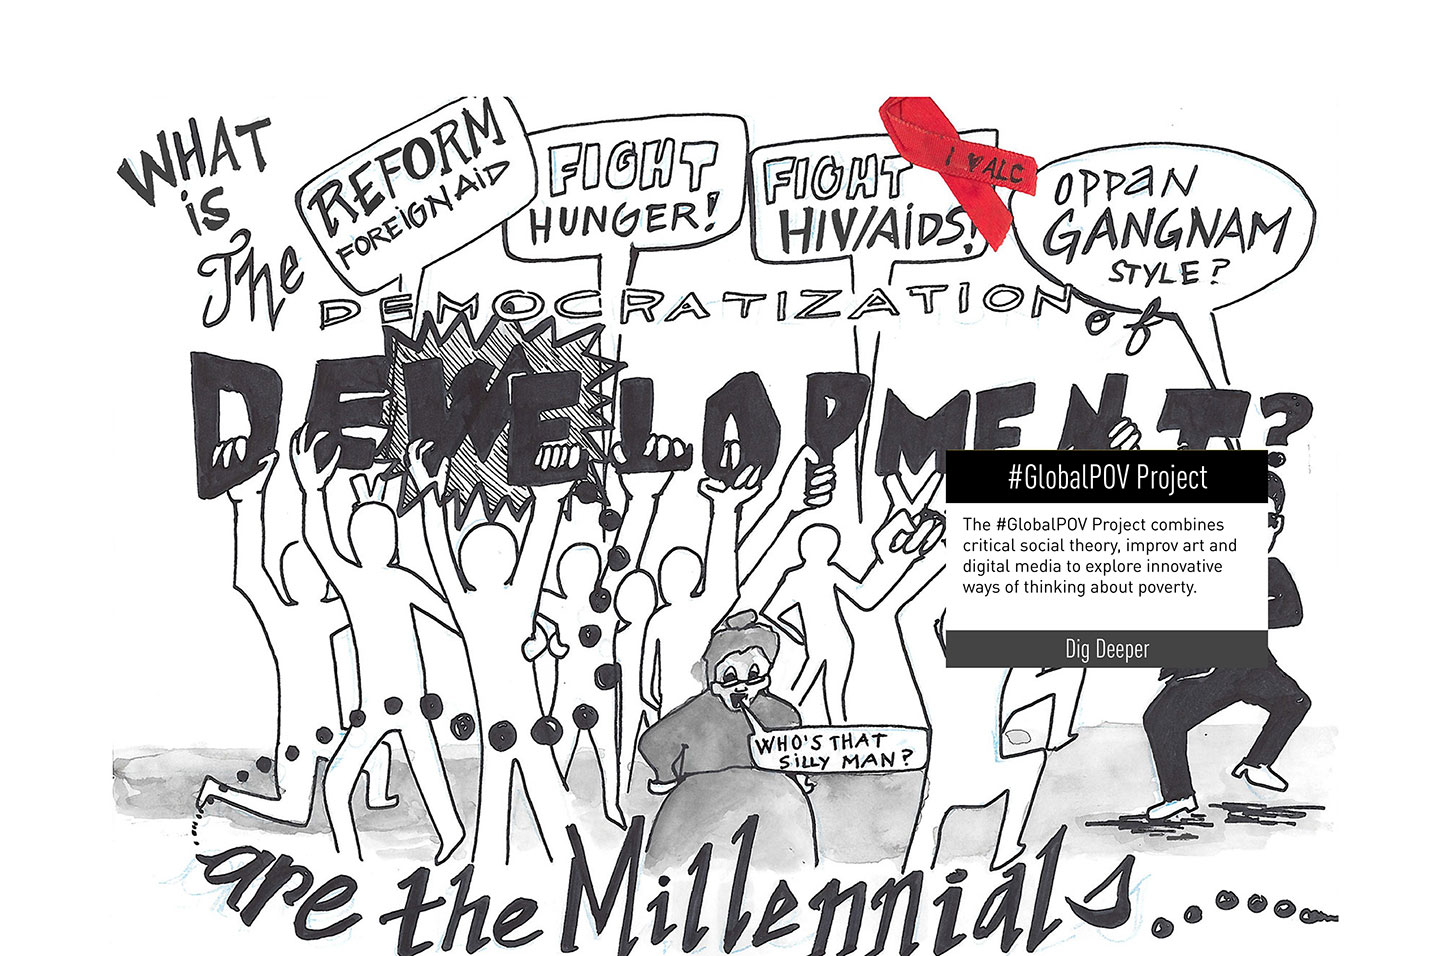 WHAT
is
The
REFORM
FOREIGN AID
FIGHT
HUNGER!
FIGHT
HIV/AiDS!
I ♥ ALC
OPPaN
GANGNAM
STYLE?
DEMOCRATIZATION
of
DEVELOPMENT?
#GlobalPOV Project
The #GlobalPOV Project combines
critical social theory, improv art and
digital media to explore innovative
ways of thinking about poverty.
Dig Deeper
WHO'S THAT
SiLLY MAN?
are the Millennials.......